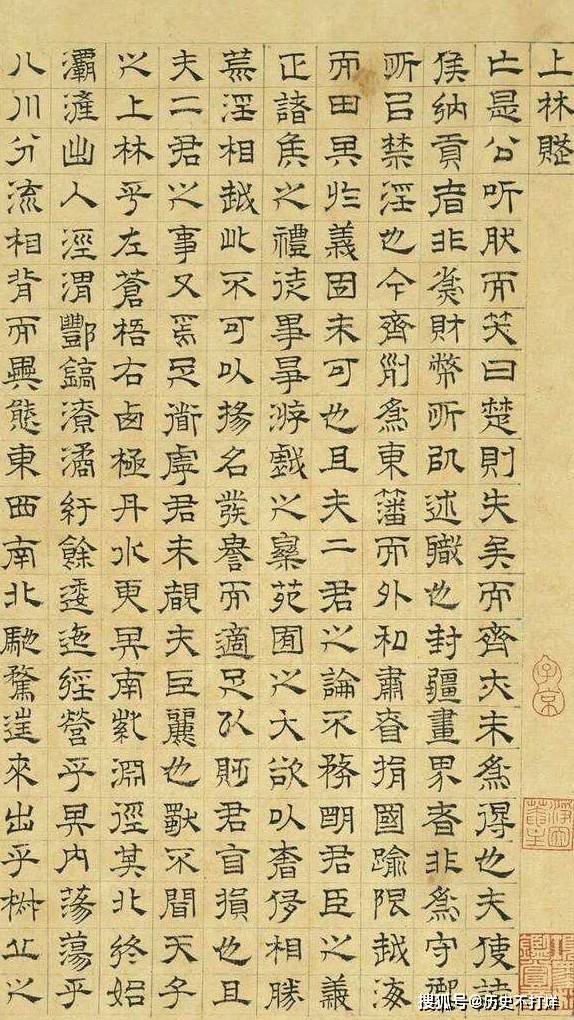 上林賦
亡是公听肰而笑曰楚則失矣而齊亦未爲得也夫使諸
矦納貢者非爲財幣所以述職也封疆畫界者非爲守禦
所以禁淫也今齊列爲東藩而外私肅眘捐國踰限越海
而田其於義固未可也且夫二君之論不務明君臣之義
正諸矦之禮徒事爭游戲之樂苑囿之大欲以奢侈相勝
荒淫相越此不可以揚名發譽而適足以貶君自損也且
夫二君之事又焉足道虖君未覩夫巨麗也獨不聞天子
之上林乎左蒼梧右西極丹水更其南紫淵徑其北終始
灞滻出入涇渭酆鎬潦潏紆餘逶迤經營乎其内蕩蕩乎
八川分流相背而異態東西南北馳騖往來出乎椒丘之
子京
搜狐号@历史不打烊